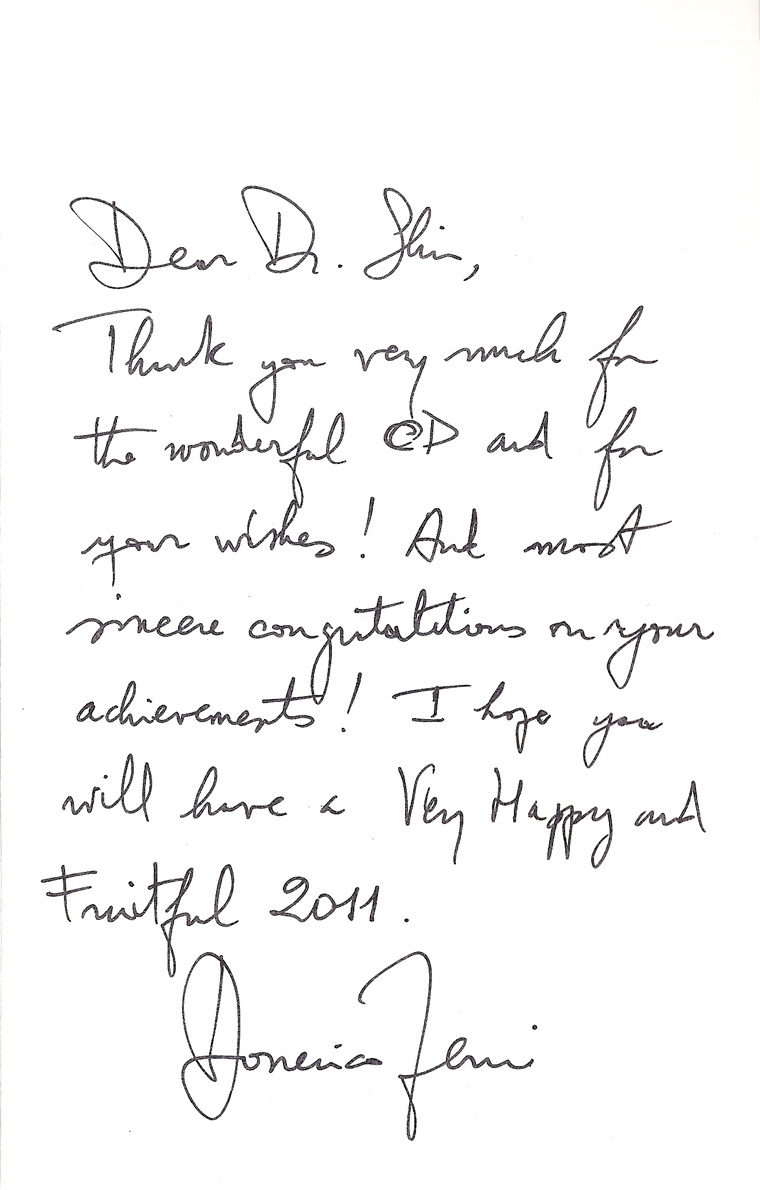 Dear Dr. Shin,
Thank you very much for
the wonderful CD and for
your wishes! And most
sincere congratulations on your
achievements! I hope you
will have a Very Happy and
Fruitful 2011.